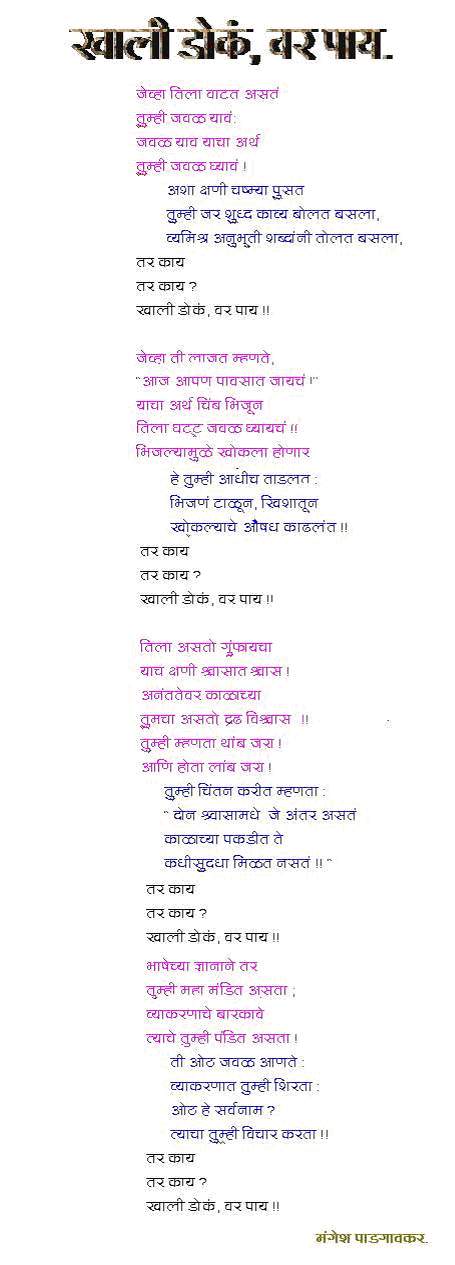 खाली डोकं, वर पाय.
जेव्हा तिला वाटत असतं
तुम्ही जवळ यावं:
जवळ याव याचा अर्थ
तुम्ही जवळ घ्यावं !
अशा क्षणी चष्म्या पुसत
तुम्ही जर शुध्द काव्य बोलत बसला,
व्यमिश्र अनुभूती शब्दांनी तोलत बसला,
तर काय
तर काय ?
खाली डोकं, वर पाय !!
जेव्हा ती लाजत म्हणते,
"आज आपण पावसात जायचं !"
याचा अर्थ चिंब भिजून
तिला घट्ट जवळ घ्यायचं !!
भिजल्यामुळे खोकला होणार
हे तुम्ही आधीच ताडलत :
भिजणं टाळून, खिशातून
खोकल्याचे औषध काढलंत !!
तर काय
तर काय ?
खाली डोकं, वर पाय !!
तिला असतो गुंफायचा
याच क्षणी श्वासात श्वास !
अनंततेवर काळाच्या
तुमचा असतो द्रढ विश्वास !!
तुम्ही म्हणता थांब जरा !
आणि होता लांब जरा !
तुम्ही चिंतन करीत म्हणता :
" दोन श्वासामधे जे अंतर असतं
काळाच्या पकडीत ते
कधीसुदधा मिळत नसतं !! "
तर काय
तर काय ?
खाली डोकं, वर पाय !!
भाषेच्या ज्ञानाने तर
तुम्ही महा मंडित असता ;
व्याकरणाचे बारकावे
त्याचे तुम्ही पंडित असता !
ती ओट जवळ आणते :
व्याकरणात तुम्ही शिरता :
ओट हे सर्वनाम ?
त्याचा तुम्ही विचार करता !!
तर काय
तर काय ?
खाली डोकं, वर पाय !!
मंगेश पाडगावकर.